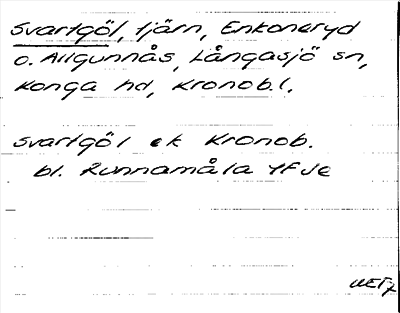 Svartgöl, tjärn, Enkoneryd
o. Allgunnås, Långasjö sn,
Konga hd, Kronob. l.
Svartgöl ek Kronob.
bl. Runnamåla